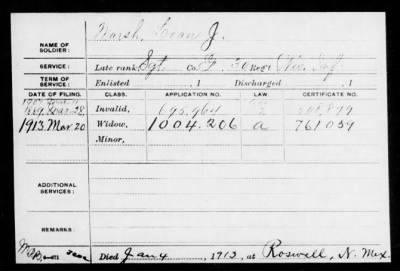 Marsh, J.
NAME OF SOLDIER:
SERVICE: Late rank Sgt. Co. F. 30 Reg't Wis. Inf.
TERM OF SERVICE: Enlisted , 1 Discharged , 1
DATE OF FILING. CLASS. APPLICATION NO. LAW. CERTIFICATE NO.
Invalid, 695,964
1913 Mar. 20 Widow, 1004.206 a 761059
Minor,
ADDITIONAL SERVICES:
REMARKS:
Died Jan 4, 1913, at Roswell, N. Mex.